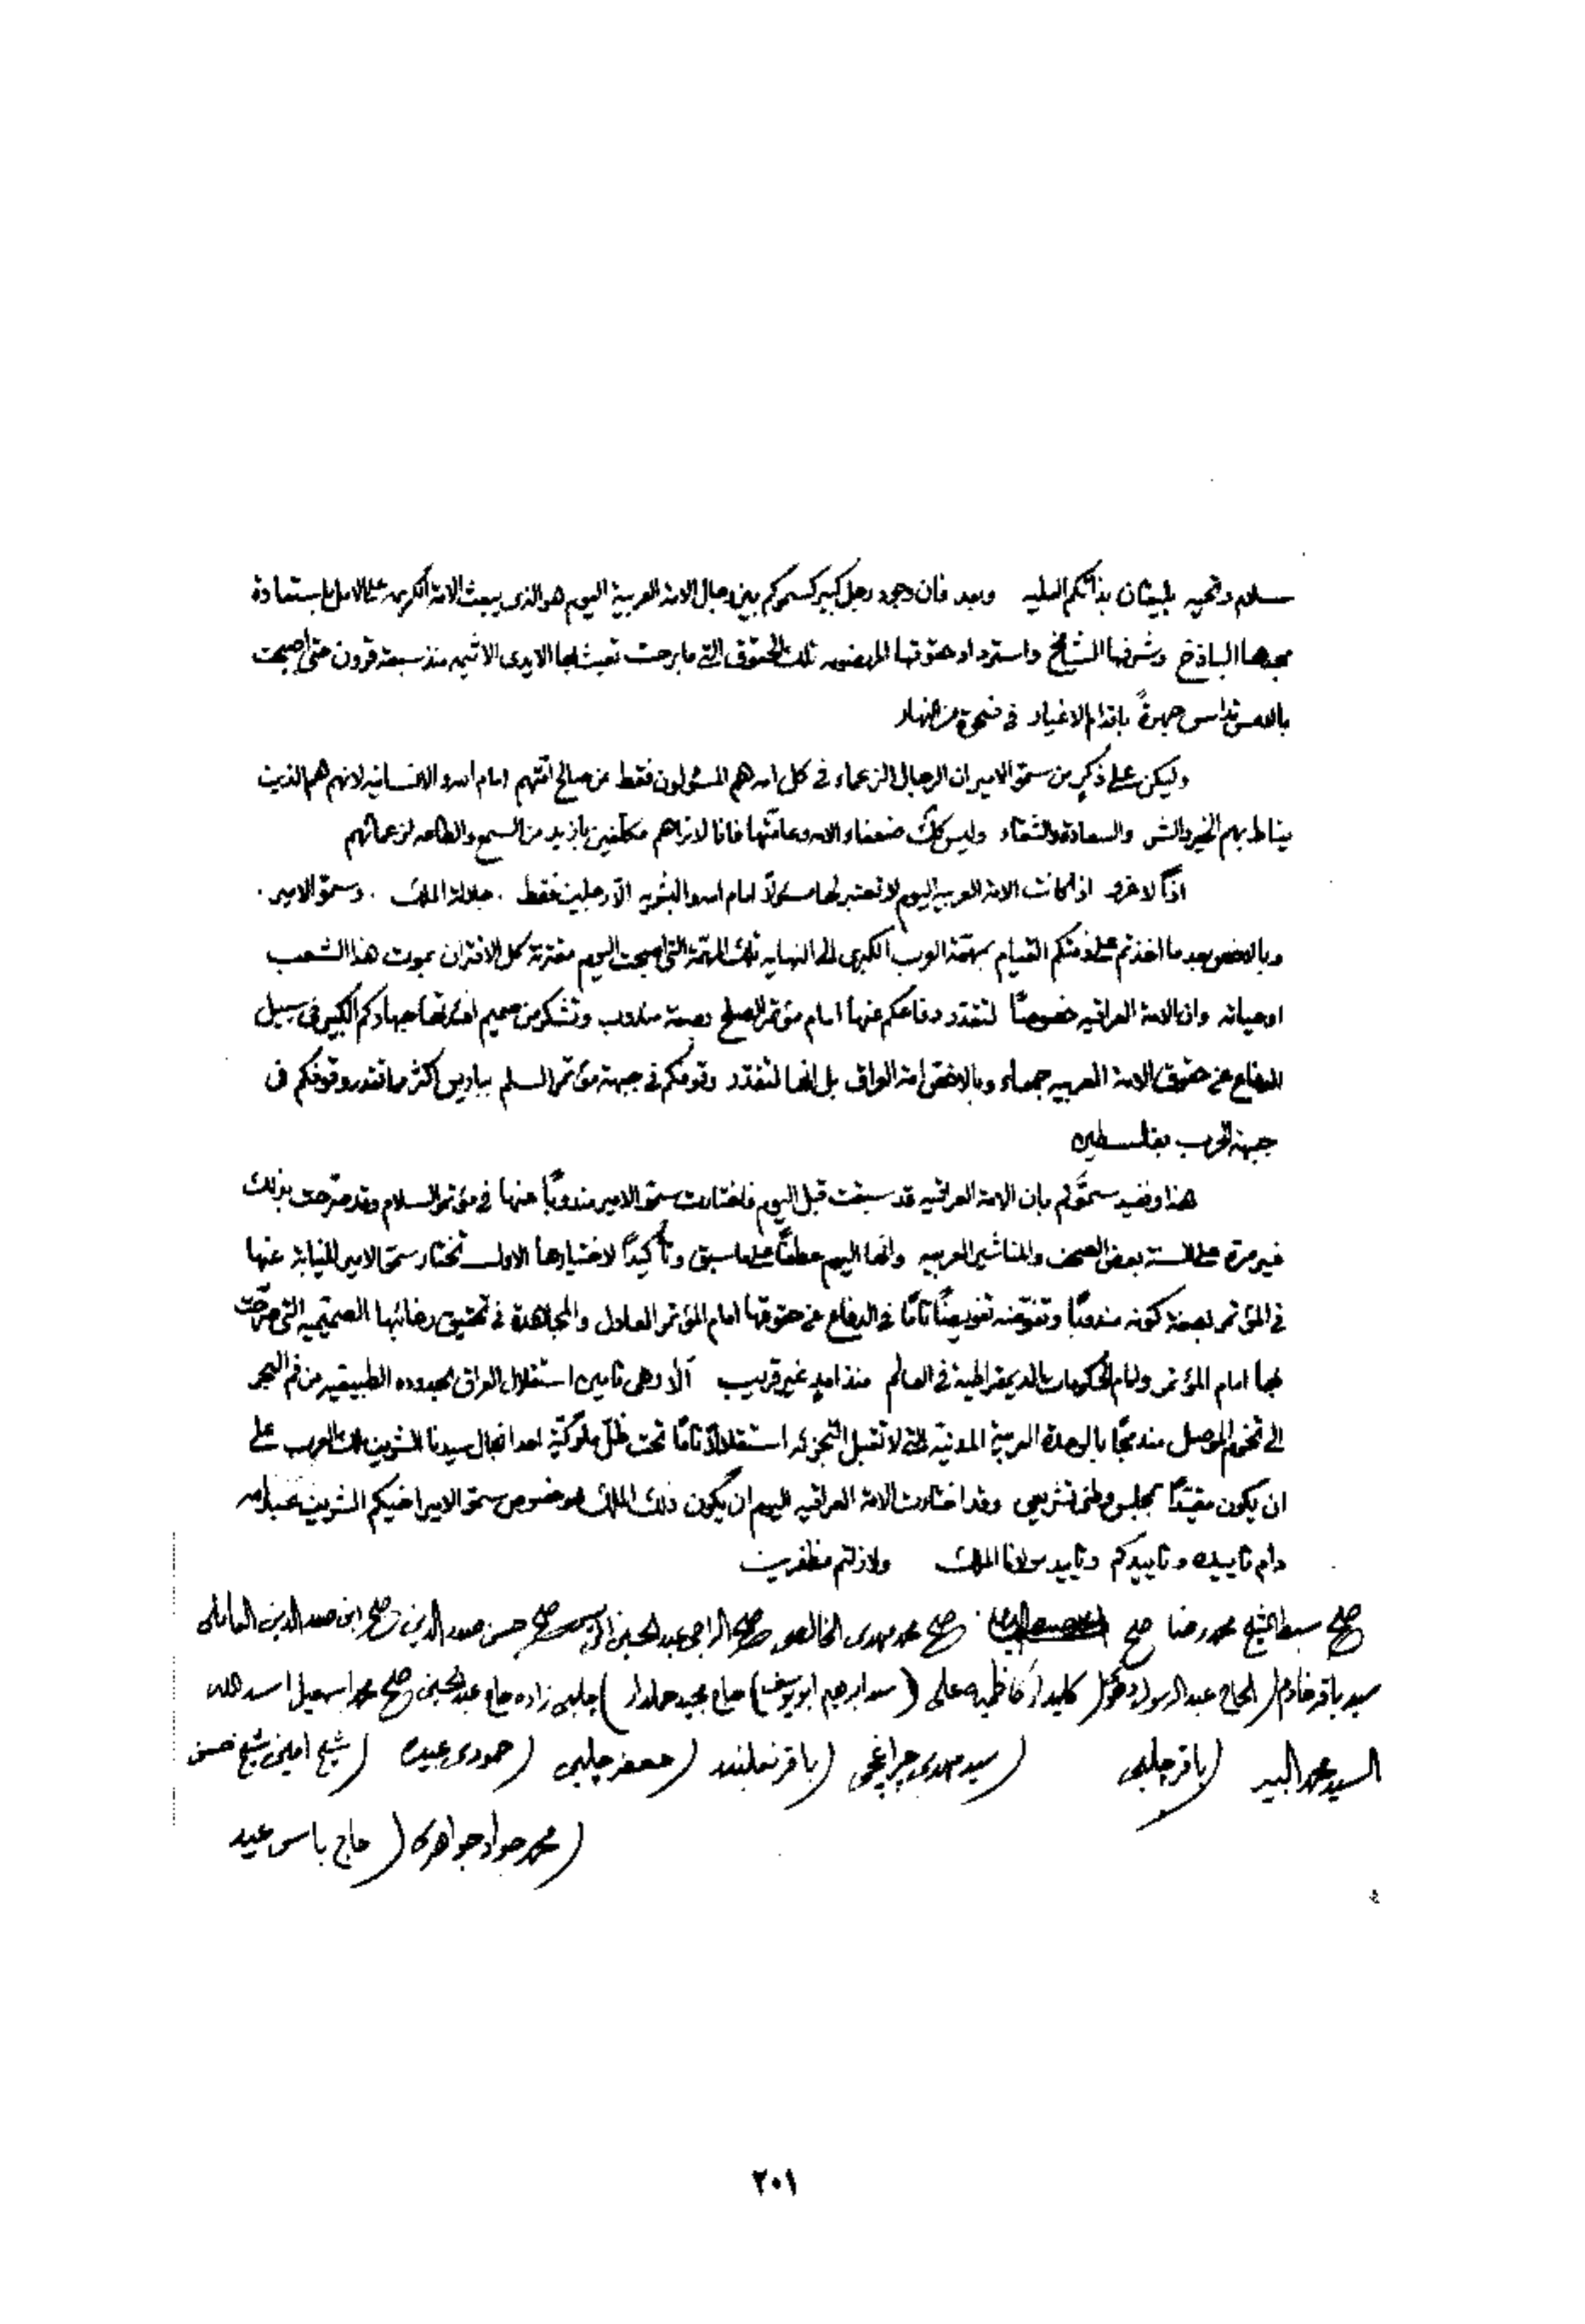 سلام وتحيه يليقان بذاتكم العليه وبعد فان وجود رجل كبير كسموكم بين رجال الامة العربية اليوم هو الذي يبعث الامة الكريمه على الامل باستعادة
مجدها الباذخ وشرفها الشامخ واسترداد حقوقها المهضومه تلك الحقوق التي ما برحت تعيث بها الايدي الاثيمه منذ سبعة قرون حتى اصبحت
بالامس تداس جهرةً باقدام الاغيار في ضحوة من النهار
وليكن على ذكرٍ من سمو الامير ان الرجال الزعماء في كل امه هم المسؤلون فقط عن صالح امتهم امام الله والانسانيه لانهم هم الذين
يناط بهم الخير والشر والسعادة والشقاء وليس كذلك ضعفاء الامه وعامتها فانا لا نراهم مكلفين بازيد من السمع والطاعه لزعمائهم
اذاً لا غرو اذا كانت الامة العربية اليوم لا تعتبر لها مسئولاً امام الله والبشريه الا رجلين فقط . جلالة الملك . وسمو الامير .
وبالاخص بعد ما اخذتم على ذمتكم القيام بمهمة العرب الكبرى الى النهايه تلك المهمّة التي اصبحت اليوم مقترنة كل الاقتران بموت هذا الشعب
او حياته وان الامة العراقيه خصوصاً لتقدّر دفاعكم عنها امام مؤتمر الصلح بصفة مندوب وتشكر من صميم افئدتها جهادكم الكبير في سبيل
الدفاع عن حقوق الامة العربيه جمعاء وبالاخص امة العراق بل انها لتقدّر وقوفكم في جبهة مؤتمر السلم بباريس اكثر مما تقدر وقوفكم في
جبهة الحرب بفلسطين
هذا ونفيد سموّكم بان الامة العراقيه قد سبقت قبل اليوم فاختارت سمو الامير مندوباً عنها في مؤتمر السلام وقد صرّحت بذلك
غير مرة على السنة بعض الصحف والمناشير العربيه وانها اليوم عطفاً على ما سبق وتأكيداً لاختيارها الاول تختار سمو الامير للنيابة عنها
في المؤتمر بصفة كونه مندوباً وتفوّضه تفويضاً تاماً في الدفاع عن حقوقها امام المؤتمر العادل والمجاهدة في تحقيق رغائبها الصميميه التي صرّحت
بها امام المؤتمر وامام الحكومات الديمقراطية في العالم منذ امدٍ غير قريب ألا وهي تامين استقلال العراق بحدوده الطبيعيه من فم البحر
الى تخوم الموصل مندمجاً بالوحدة العربية المدنية التي لا تقبل التجزئه استقلالاً تاماً تحت ظلّ ملوكيّة احد انجال سيدنا الشريف ملك العرب على
ان يكون مقيّداً بمجلس وطني تشريعي وقد اختارت الامة العراقيه اليوم ان يكون ذلك الملك هو خصوص سمو الامير اخيكم الشريف عبدالله
دام تاييده وتاييدكم وتاييد مولانا الملك ولا زلتم مظفرين
صح سبط الشيخ محمد رضا صح صح محمد مهدي الخالصي صح الراجي عبد الحسين صح حسن صدر الدين صح ابن صدر الدين العاملي
سيد باقر خادم ( الحاج عبد الرسول ( كليدار كاظميه علي ( سيد ابرهيم ابو يوسف ) حاج مجيد حمدار ) چلبي زاده حاج عبد الحسين صح محمد اسمعيل اسد الله
السيد محمد البير ( باقر چلبي ( سيد مهدي چراغچي ( باقر نعلبند ( جعفر چلبي ( حمودي عبيده ( شيخ امين شيخ حسن
( محمد جواد جواهري ( حاج ياس عيد
٢٠١